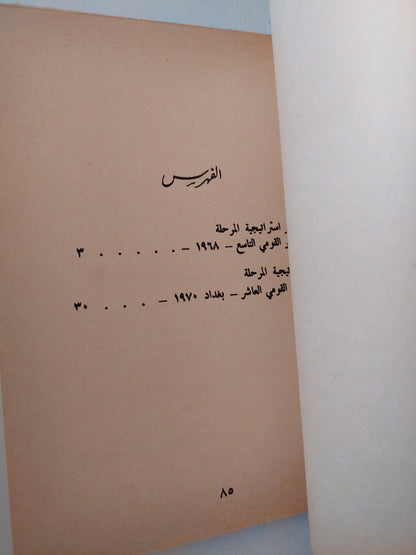 الفهرس
استراتيجية المرحلة
القومي التاسع – ١٩٦٨ – . . . . . ٣
المرحلة
القومي العاشر – بغداد ١٩٧٠ – . . . . ٣٠
٨٥